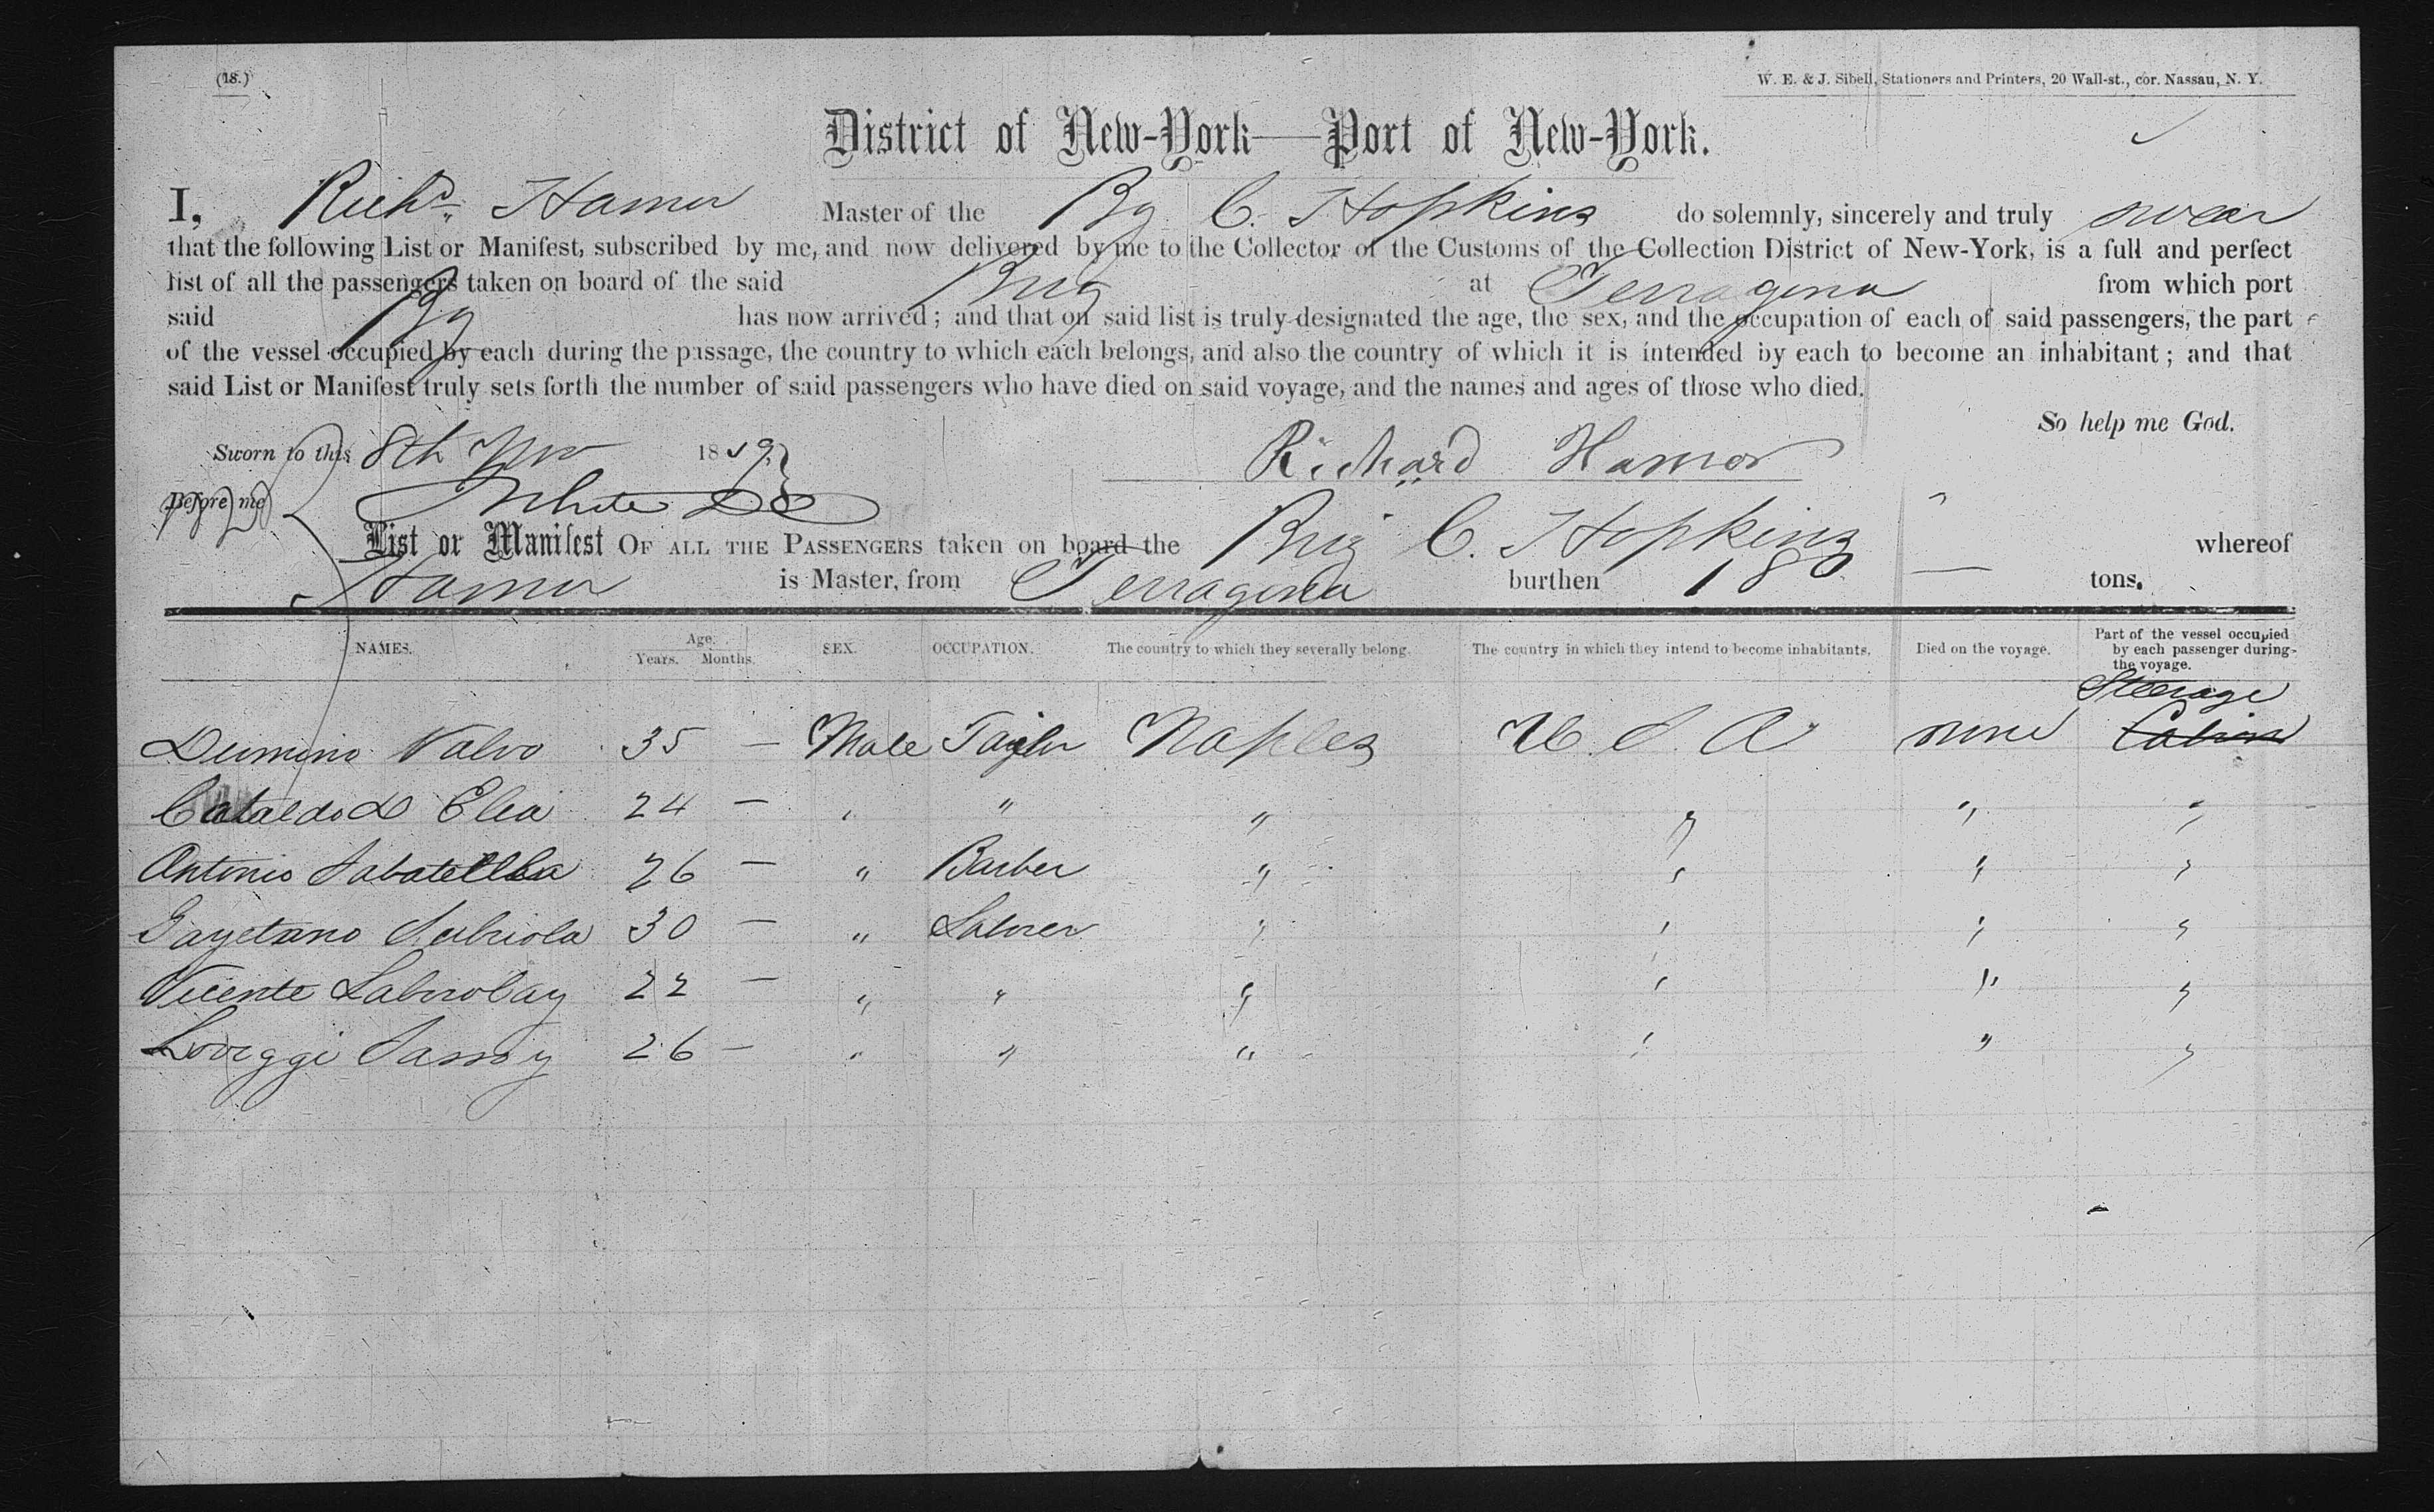 (18.)
W. E. & J. Sibell, Stationers and Printers, 20 Wall-st., cor. Nassau, N. Y.
District of New-York—Port of New-York.
I, Richd. Hamor Master of the Bg C. Hopkins do solemnly, sincerely and truly swear
that the following List or Manifest, subscribed by me, and now delivered by me to the Collector of the Customs of the Collection District of New-York, is a full and perfect
list of all the passengers taken on board of the said Brig at Terragona from which port
said Bg has now arrived; and that on said list is truly designated the age, the sex, and the occupation of each of said passengers, the part
of the vessel occupied by each during the passage, the country to which each belongs, and also the country of which it is intended by each to become an inhabitant; and that
said List or Manifest truly sets forth the number of said passengers who have died on said voyage, and the names and ages of those who died.
So help me God.
Sworn to this 8th Nov 1859 Richard Hamor
Before me White
List or Manifest OF ALL THE PASSENGERS taken on board the Brig C. Hopkins whereof
Hamor is Master, from Terragona burthen 180 — tons.
NAMES. Age. Years. Months. SEX. OCCUPATION. The country to which they severally belong. The country in which they intend to become inhabitants. Died on the voyage. Part of the vessel occupied by each passenger during the voyage.
Steerage
Dumino Valvo 35 — Male Taylor Naples U. S. A none Cabin
Cataldo D Elia 24 — " " " " " "
Antonio Sabatella 26 — " Barber " " " "
Gayetano Subriola 30 — " Laborer " " " "
Vicente 22 — " " " " " "
Loviggi 26 — " " " " " "